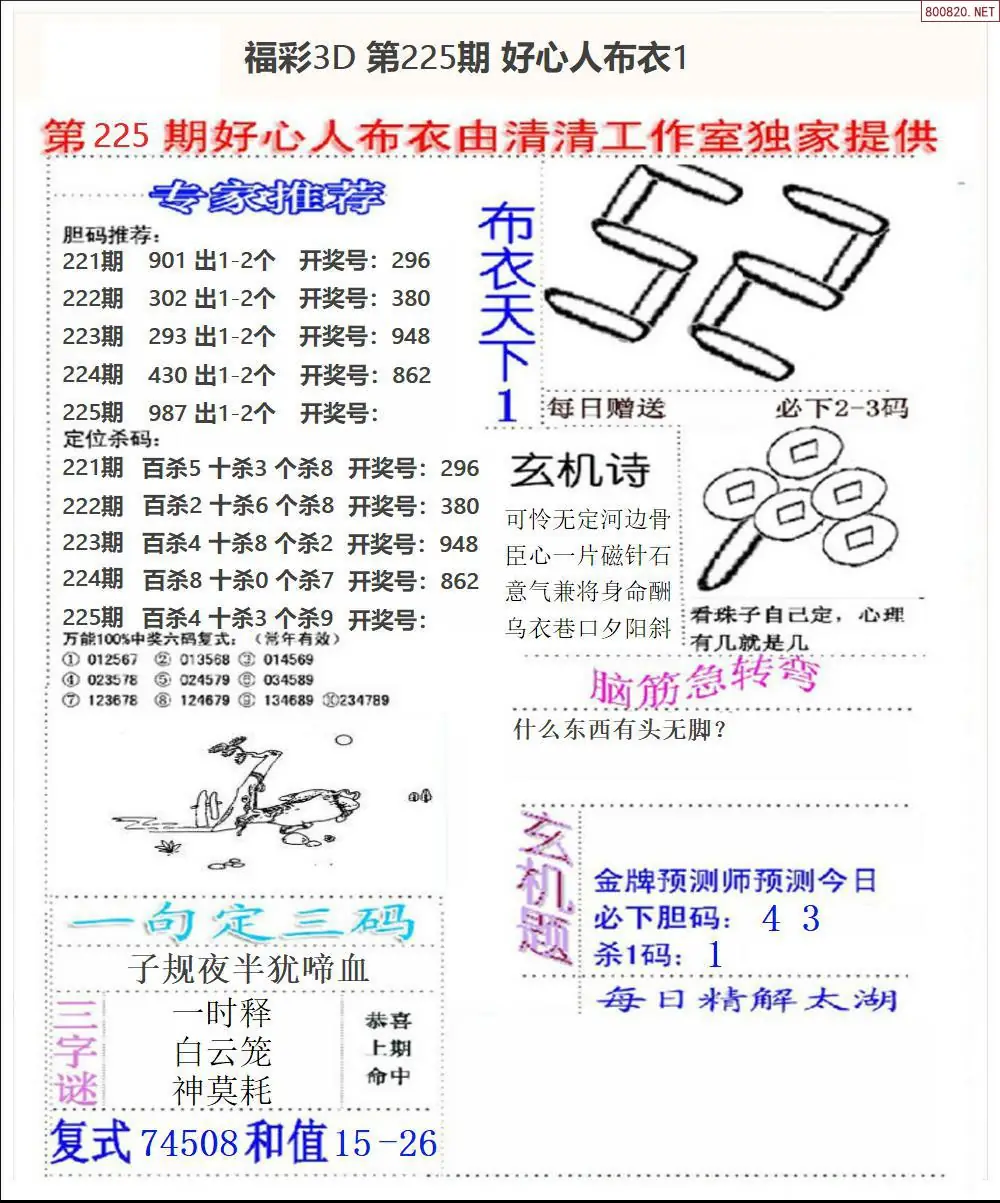 800820.NET
福彩3D 第225期 好心人布衣1
第225 期好心人布衣由清清工作室独家提供
专家推荐
胆码推荐:
221期 901 出1-2个 开奖号: 296
222期 302 出1-2个 开奖号: 380
223期 293 出1-2个 开奖号: 948
224期 430 出1-2个 开奖号: 862
225期 987 出1-2个 开奖号:
定位杀码:
221期 百杀5 十杀3 个杀8 开奖号: 296
222期 百杀2 十杀6 个杀8 开奖号: 380
223期 百杀4 十杀8 个杀2 开奖号: 948
224期 百杀8 十杀0 个杀7 开奖号: 862
225期 百杀4 十杀3 个杀9 开奖号:
万能100%中奖六码复式: (常年有效)
① 012567 ② 013568 ③ 014569
④ 023578 ⑤ 024579 ⑥ 034589
⑦ 123678 ⑧ 124679 ⑨ 134689 ⑩234789
一句定三码
子规夜半犹啼血
三字谜
一时释
白云笼
神莫耗
恭喜
上期
命中
复式 74508 和值 15-26
布衣天下1
52
每日赠送 必下2-3码
玄机诗
可怜无定河边骨
臣心一片磁针石
意气兼将身命酬
乌衣巷口夕阳斜
看珠子自己定，心理
有几就是几
脑筋急转弯
什么东西有头无脚?
玄机题
金牌预测师预测今日
必下胆码: 4 3
杀1码: 1
每日精解太湖